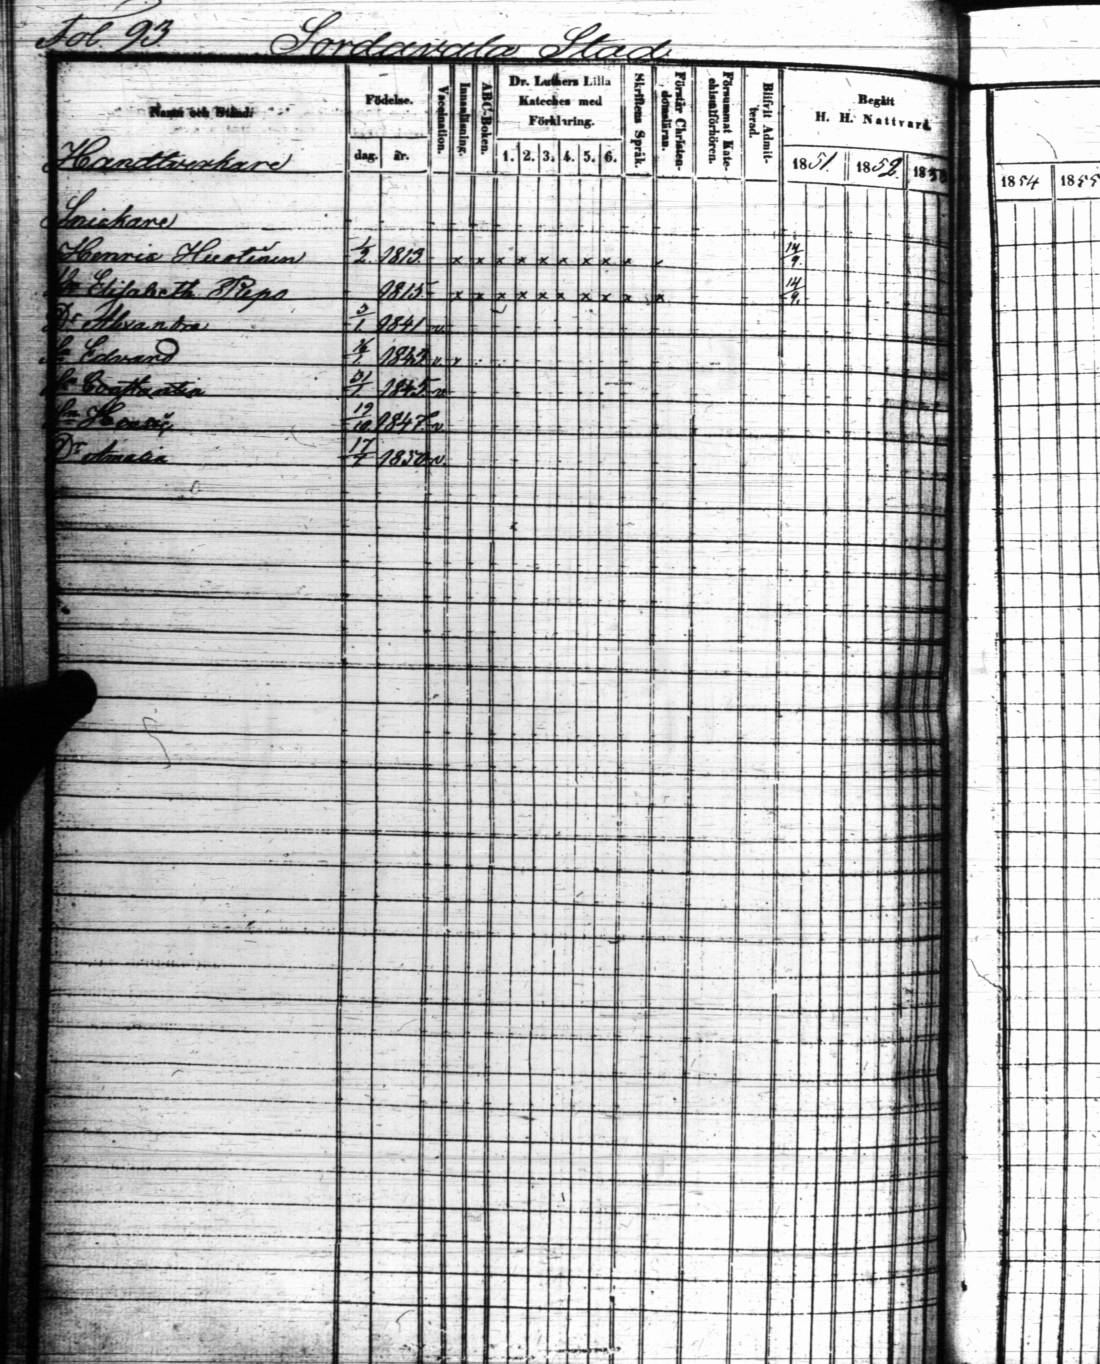 Fol. 93. Sordavala Stad
Namn och Stånd:
Födelse.
dag. år.
Vaccination.
Innanläsning.
ABC-Boken.
Dr. Luthers Lilla
Kateches med
Förklaring.
1. 2. 3. 4. 5. 6.
Skriftens Språk.
Förstår Christen-
domsläran.
Försummat Kate-
chismiförhören.
Blifvit Admit-
terad.
Begått
H. H. Nattvard.
1851. 1852. 1853
1854 1855
Handtverkare
Snickare
Henric 1/2 1813 x x x x x x x x x 14/9.
Hu Elisabeth Repo 1815 x x x x x x x x x x 14/9.
Dr Alexandra 3/1 1841 v
Sn Edvard 1843 v
Sn Constantin 31/7 1845 v
Sn Henric 19/10 1847 v
Dr Amalia 17/7 1850 v.